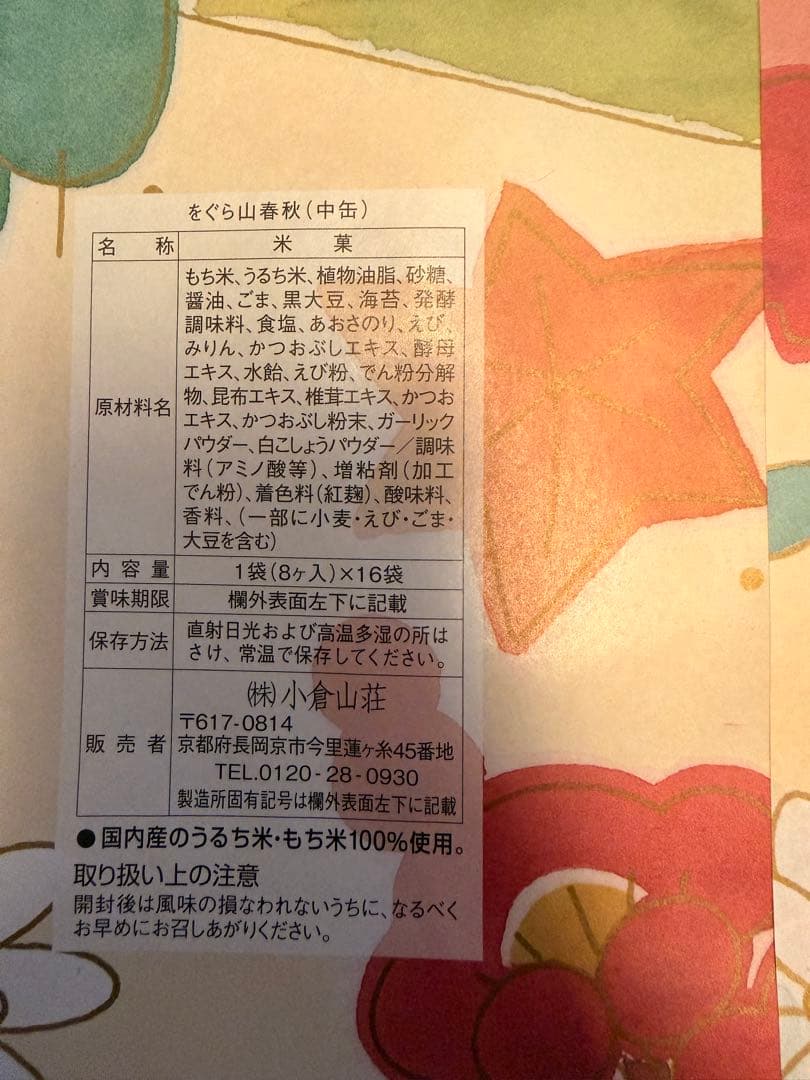 をぐら山春秋(中缶)
名称 米菓
原材料名
もち米、うるち米、植物油脂、砂糖、
醤油、ごま、黒大豆、海苔、発酵
調味料、食塩、あおさのり、えび、
みりん、かつおぶしエキス、酵母
エキス、水飴、えび粉、でん粉分解
物、昆布エキス、椎茸エキス、かつお
エキス、かつおぶし粉末、ガーリック
パウダー、白こしょうパウダー/調味
料(アミノ酸等)、増粘剤(加工
でん粉)、着色料(紅麹)、酸味料、
香料、(一部に小麦・えび・ごま・
大豆を含む)
内容量 1袋(8ヶ入)×16袋
賞味期限 欄外表面左下に記載
保存方法
直射日光および高温多湿の所は
さけ、常温で保存してください。
販売者
㈱小倉山荘
〒617-0814
京都府長岡京市今里蓮ヶ糸45番地
TEL.0120-28-0930
製造所固有記号は欄外表面左下に記載
●国内産のうるち米・もち米100%使用。
取り扱い上の注意
開封後は風味の損なわれないうちに、なるべく
お早めにお召しあがりください。